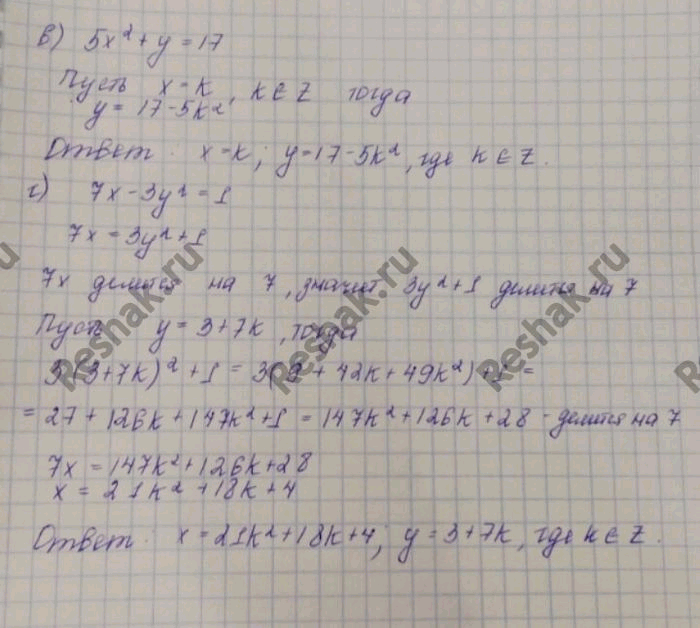 в) 5x² + y = 17
Пусть x = k, k ∈ Z тогда
y = 17 - 5k²
Ответ: x = k; y = 17 - 5k², где k ∈ Z.
г) 7x - 3y² = 1
7x = 3y² + 1
7x делится на 7, значит 3y² + 1 делится на 7
Пусть y = 3 + 7k, тогда
3(3 + 7k)² + 1 = 3(9 + 42k + 49k²) + 1 =
= 27 + 126k + 147k² + 1 = 147k² + 126k + 28 - делится на 7
7x = 147k² + 126k + 28
x = 21k² + 18k + 4
Ответ: x = 21k² + 18k + 4; y = 3 + 7k, где k ∈ Z.
Reshak.ru
Reshak.ru
Reshak.ru